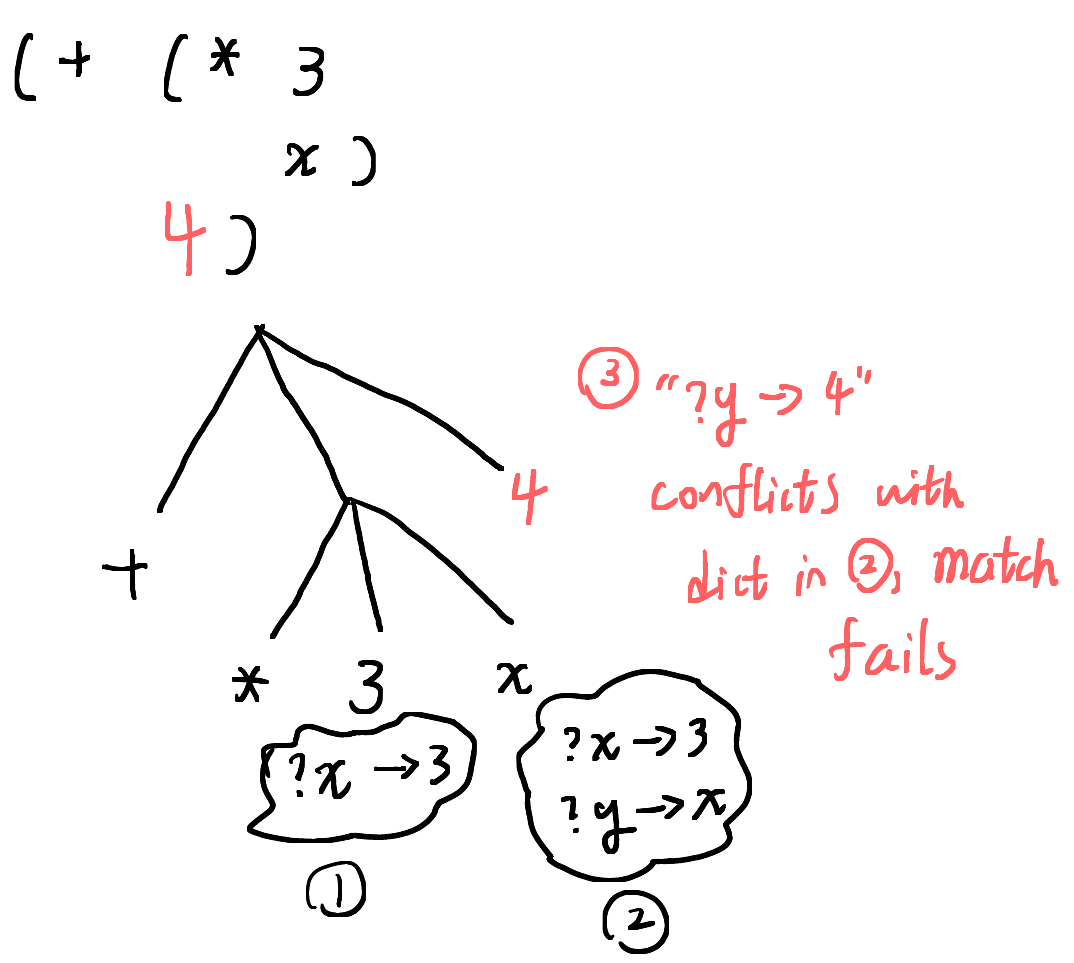 (+ (* 3
x)
4)
③ "?y → 4"
conflicts with
dict in ②, match
fails
4
+
* 3 x
?x → 3
①
?x → 3
?y → x
②